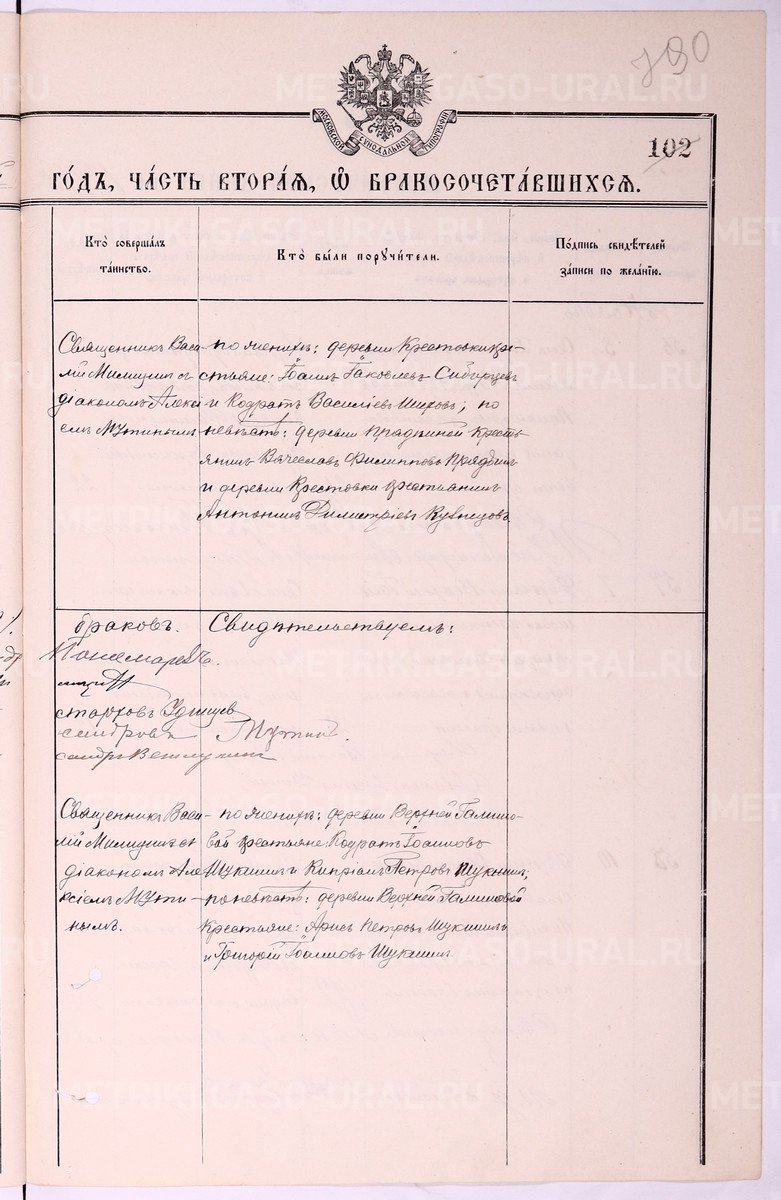 780
МОСКОВСКОЙ СѴНОДАЛЬНОЙ ТИПОГРАФІИ
102
ГОДЪ, ЧАСТЬ ВТОРАЯ, Ѽ БРАКОСОЧЕТАВШИХСЯ.
Кто совершалъ таинство.
Кто были поручители.
Подпись свидѣтелей записи по желанію.
Священникъ Васи-
лій Милицинъ съ
діакономъ Алекс
емъ Мутинымъ
по женихѣ: деревни Крестовки кре-
стьяне: Іоаннъ Іаковлевъ Сибирцевъ
и Кодратъ Василіевъ Шиховъ; по
невѣстѣ: деревни Прядкиной кресть
янинъ Вячеславъ Филипповъ Прядкинъ
и деревни Крестовки крестьянинъ
Антонинъ Димитріевъ Кузнецовъ.
браковъ. Свидѣтельствуемъ:
Пономаревъ.
старховъ Удинцев
Мутинъ.
Священникъ Васи-
лій Милицинъ съ
діакономъ Але
ксіемъ Мути-
нымъ.
по женихѣ: деревни Верхней
крестьяне: Кодратъ Іоанновъ
Шукшинъ и Кипріанъ Петровъ Шукшинъ;
по невѣстѣ: деревни Верхней
крестьяне: Петровъ Шукшинъ
и Григорій Іоанновъ Шукшинъ
METRIKI.GASO-URAL.RU